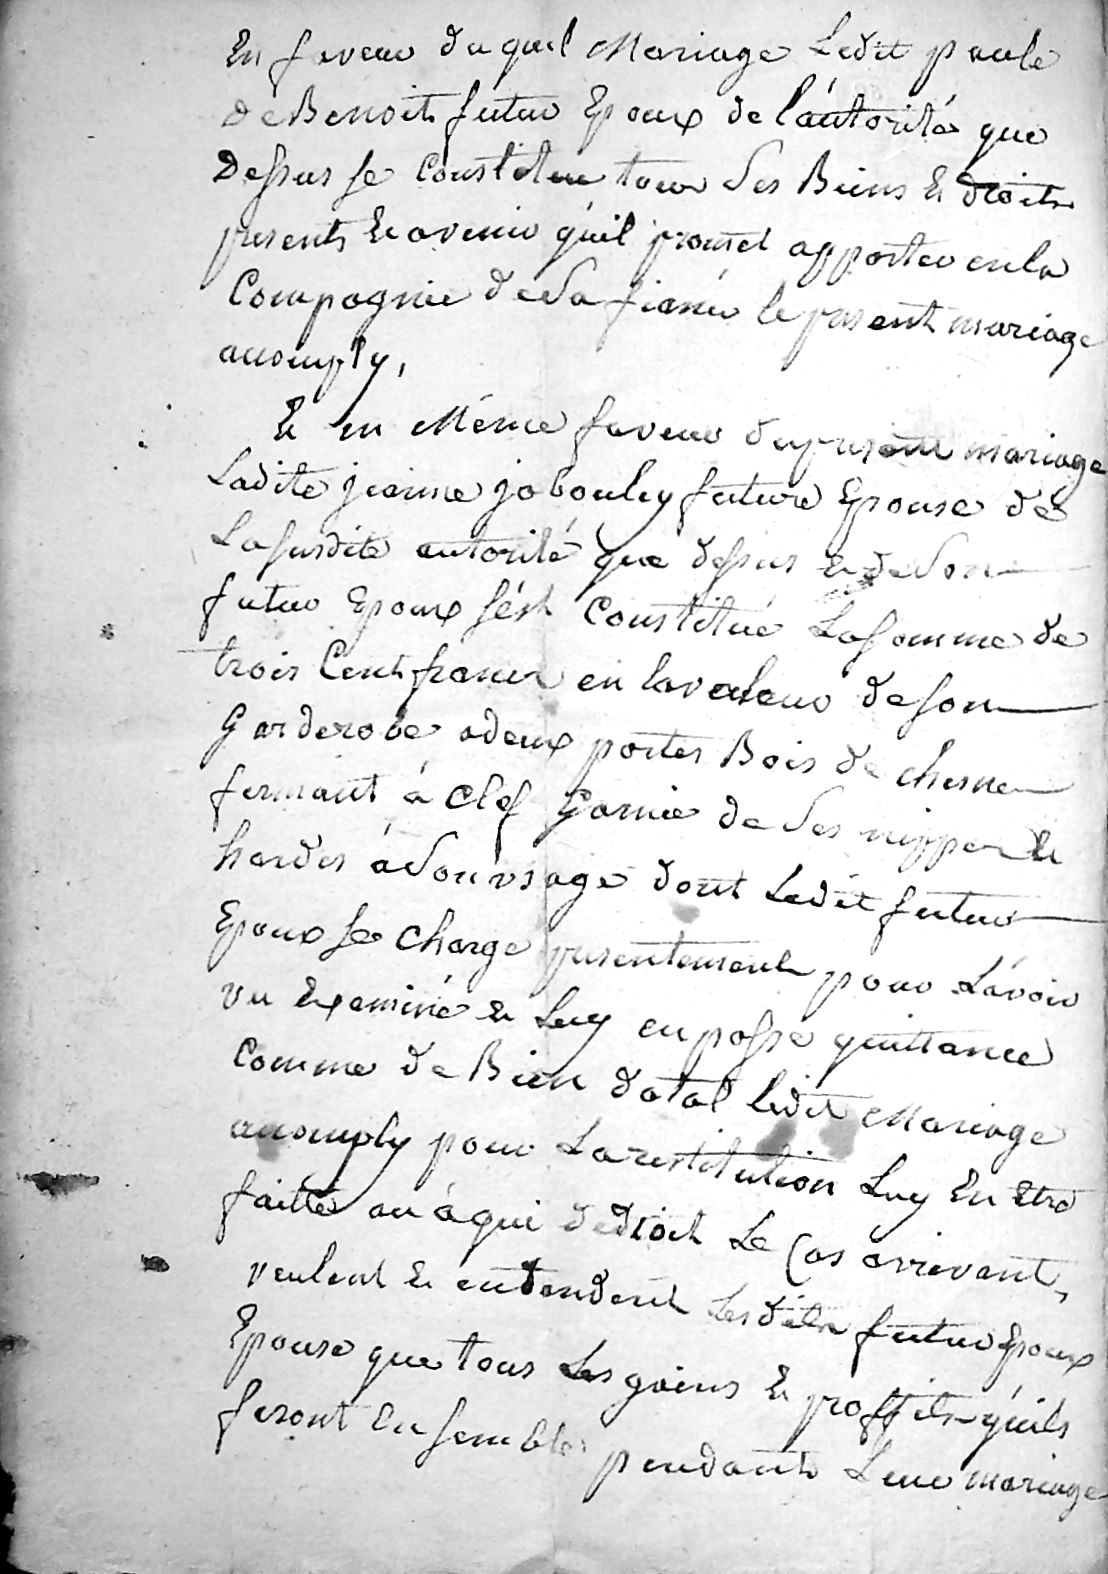 En faveur duquel Mariage Ledit paule
de Benoit futur Epoux de l'autorité que
Dessus se Constitue tous ses Biens & droits
presents & avenir qu'il promet apporter en la
Compagnie de sa fiancée le present mariage
accomply,
& en Mémce faveur du present mariage
Ladite jeanne jabouley future Epouse de
La susdite autorité que dessus & de son
futur Epoux s'ést Constitué La somme de
trois Cent francs en la valeur de son
Garderobe a deux portes Bois de chesne
fermant à Clef Garnie de ses nippes &
hardes à son usage dont Ledit futur
Epoux se charge presentement pour L'avoir
vu Examiné & Luy en passe quittance
Comme de Bien dotal ledit Mariage
accomply pour La restitution Luy En etre
faitte ou à qui de droit Le Cas arrivant,
veulent & entendent Lesdits futur Epoux
Epouse que tous Les gains & proffits qu'ils
feront Ensembles pendant Leur mariage